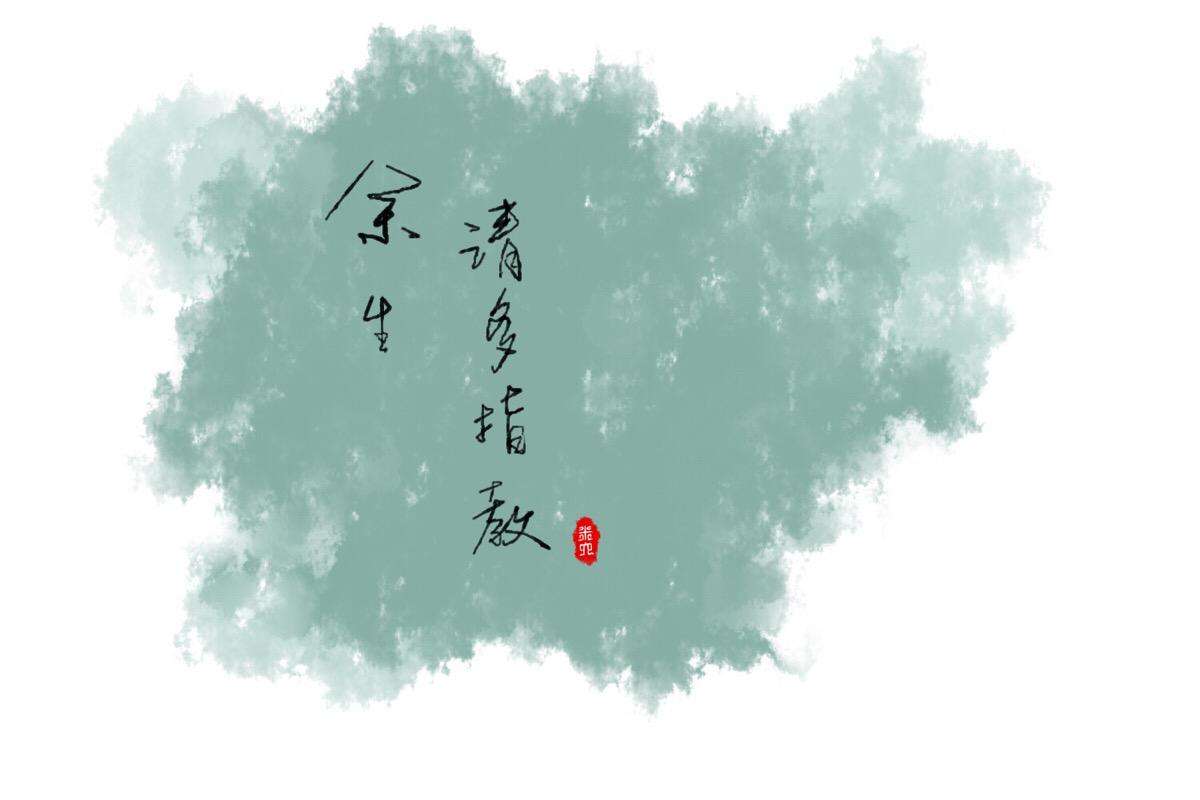 余生
请多指教